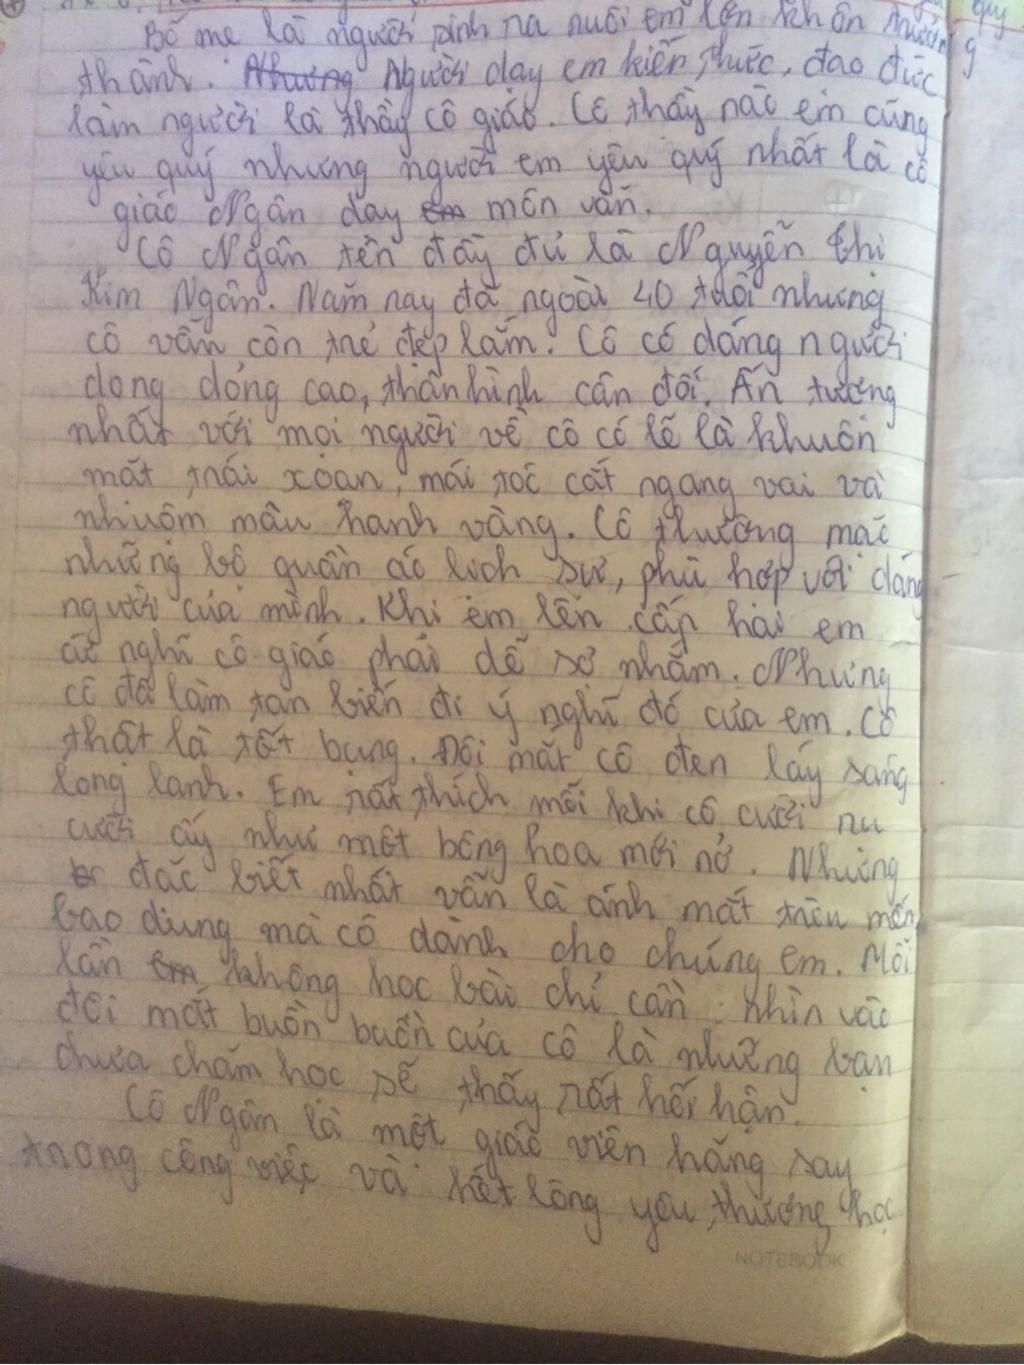 Bố mẹ là người sinh ra nuôi em lớn khôn trưởn
thành. Những Người dạy em kiến thức, đạo đức
làm người là thầy cô giáo. Cô thầy nào em cũng
yêu quý nhưng người em yêu quý nhất là cô
giáo Ngân dạy em môn văn.
Cô Ngân tên đầy đủ là Nguyễn Thị
Kim Ngân. Năm nay đã ngoài 40 tuổi nhưng
cô vẫn còn trẻ đẹp lắm. Cô có dáng người
dong dỏng cao, thân hình cân đối. Ấn tượng
nhất với mọi người về cô có lẽ là khuôn
mặt trái xoan, mái tóc cắt ngang vai và
nhuộm màu hanh vàng. Cô thường mặc
những bộ quần áo lịch sự, phù hợp với dáng
người của mình. Khi em lên cấp hai em
cứ nghĩ cô giáo phải dễ sợ nhắm. Nhưng
cô đã làm tan biến đi ý nghĩ đó của em. Cô
thật là tốt bụng. Đôi mắt cô đen láy sáng
long lanh. Em rất thích mỗi khi cô cười nụ
cười ấy như một bông hoa mới nở. Nhưng
đặc biệt nhất vẫn là ánh mắt trìu mến,
bao dung mà cô dành cho chúng em. Mỗi
lần em không học bài chỉ cần nhìn vào
đôi mắt buồn buồn của cô là những bạn
chưa chăm học sẽ thấy rất hối hận.
Cô Ngân là một giáo viên hăng say
trong công việc và hết lòng yêu thương học
NOTEBOOK
quý
g